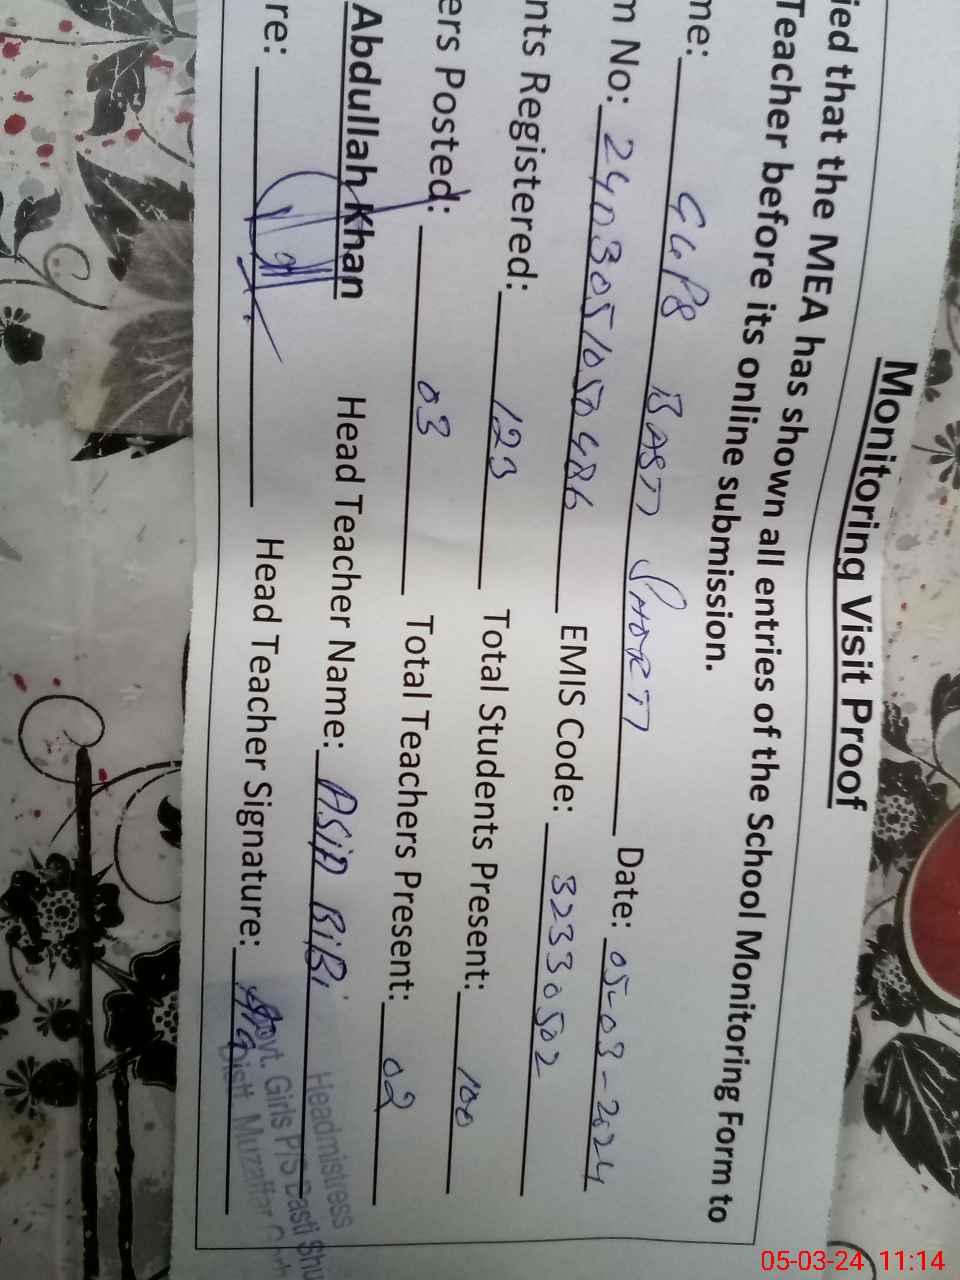 Monitoring Visit Proof
ied that the MEA has shown all entries of the School Monitoring Form to
Teacher before its online submission.
me: GGPS BASTI SHORTI Date: 05-03-2024
m No: 2403051050486 EMIS Code: 32330502
nts Registered: 123 Total Students Present: 100
ers Posted: 03 Total Teachers Present: 02
Abdullah Khan Head Teacher Name: ASiA BiBi
re: Head Teacher Signature:
Headmistress
Govt. Girls P/S Basti Shu
Distt. Muzaffar Garh
05-03-24 11:14